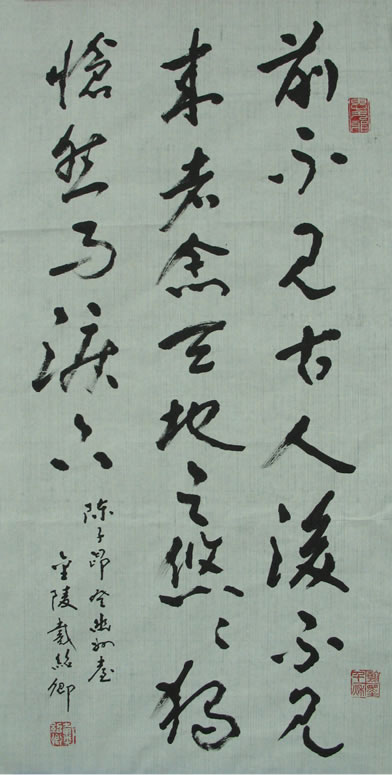 前不見古人後不見
来者念天地之悠々獨
愴然而淚下
陳子昂登幽州臺
金陵戴紹卿